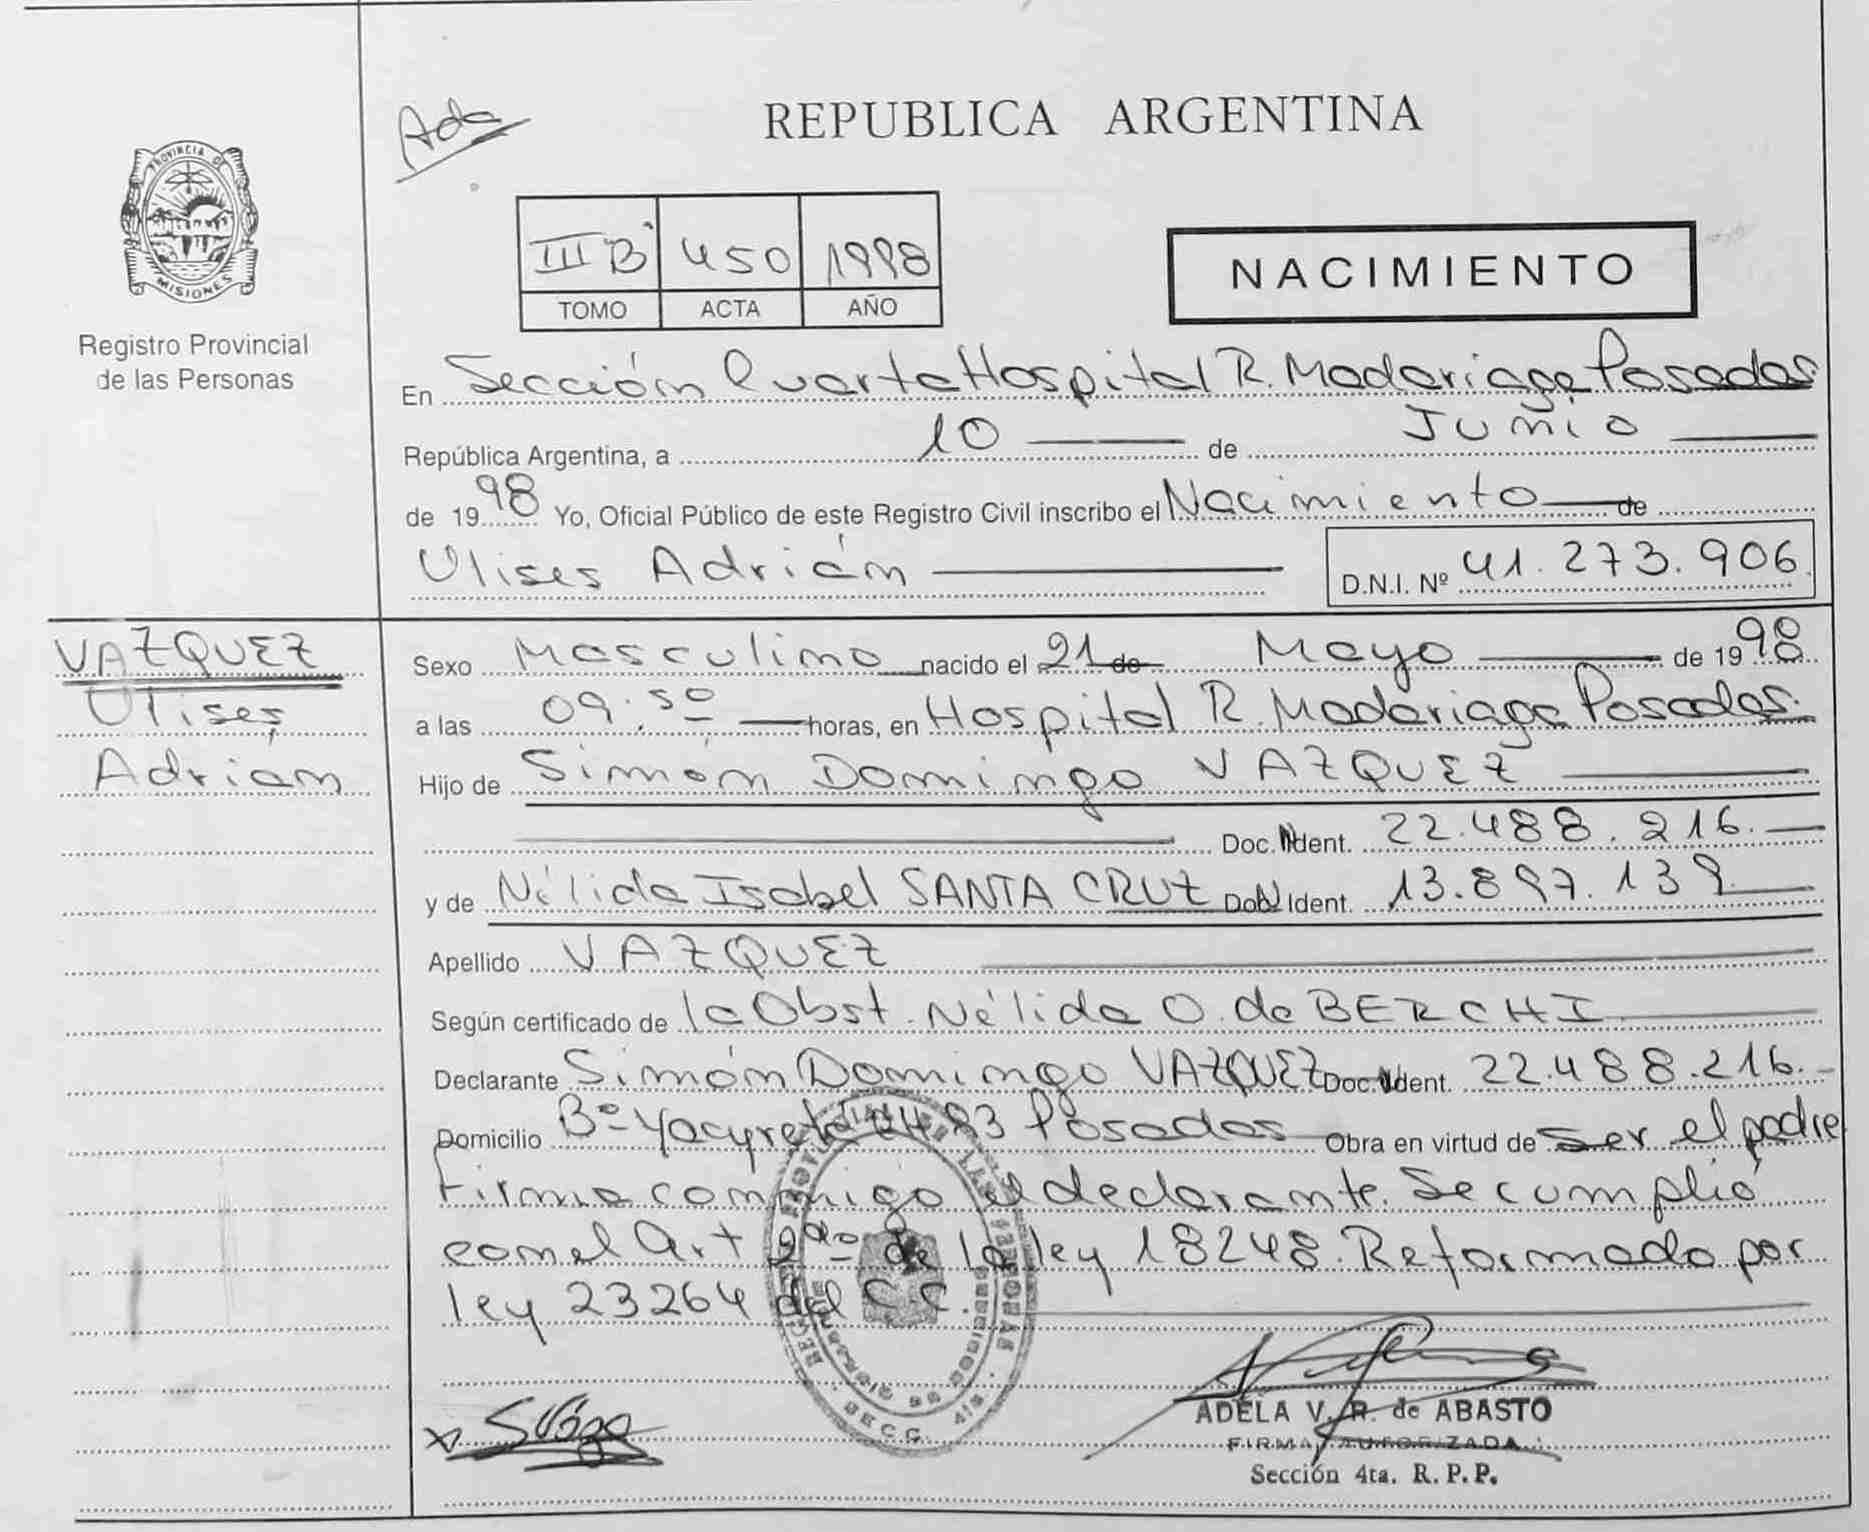 Ada
REPUBLICA ARGENTINA
PROVINCIA DE
MISIONES
Registro Provincial
de las Personas
III B 450 1998
TOMO ACTA AÑO
NACIMIENTO
En Sección Cuarta Hospital R. Madariaga Posadas
República Argentina, a 10 de Junio
de 1998 Yo, Oficial Público de este Registro Civil inscribo el Nacimiento de
Ulises Adrián D.N.I. Nº 41.273.906.
VAZQUEZ
Ulises
Adrián
Sexo Masculino nacido el 21 de Mayo de 1998
a las 09:50 horas, en Hospital R. Madariaga Posadas.
Hijo de Simón Domingo VAZQUEZ
Doc. Ident. 22.488.216.
y de Nélida Isabel SANTA CRUZ Doc. Ident. 13.897.139
Apellido VAZQUEZ
Según certificado de la Obst. Nélida O. de BERCHI
Declarante Simón Domingo VAZQUEZ Doc. Ident. 22.488.216.
Domicilio Bº Yacyreta Posadas Obra en virtud de ser el padre
Firma conmigo el declarante. Se cumplió
con el Art 2do de la ley 18248. Reformado por
ley 23264 del C.C.
ADELA V. R. de ABASTO
FIRMA AUTORIZADA
Sección 4ta. R. P. P.